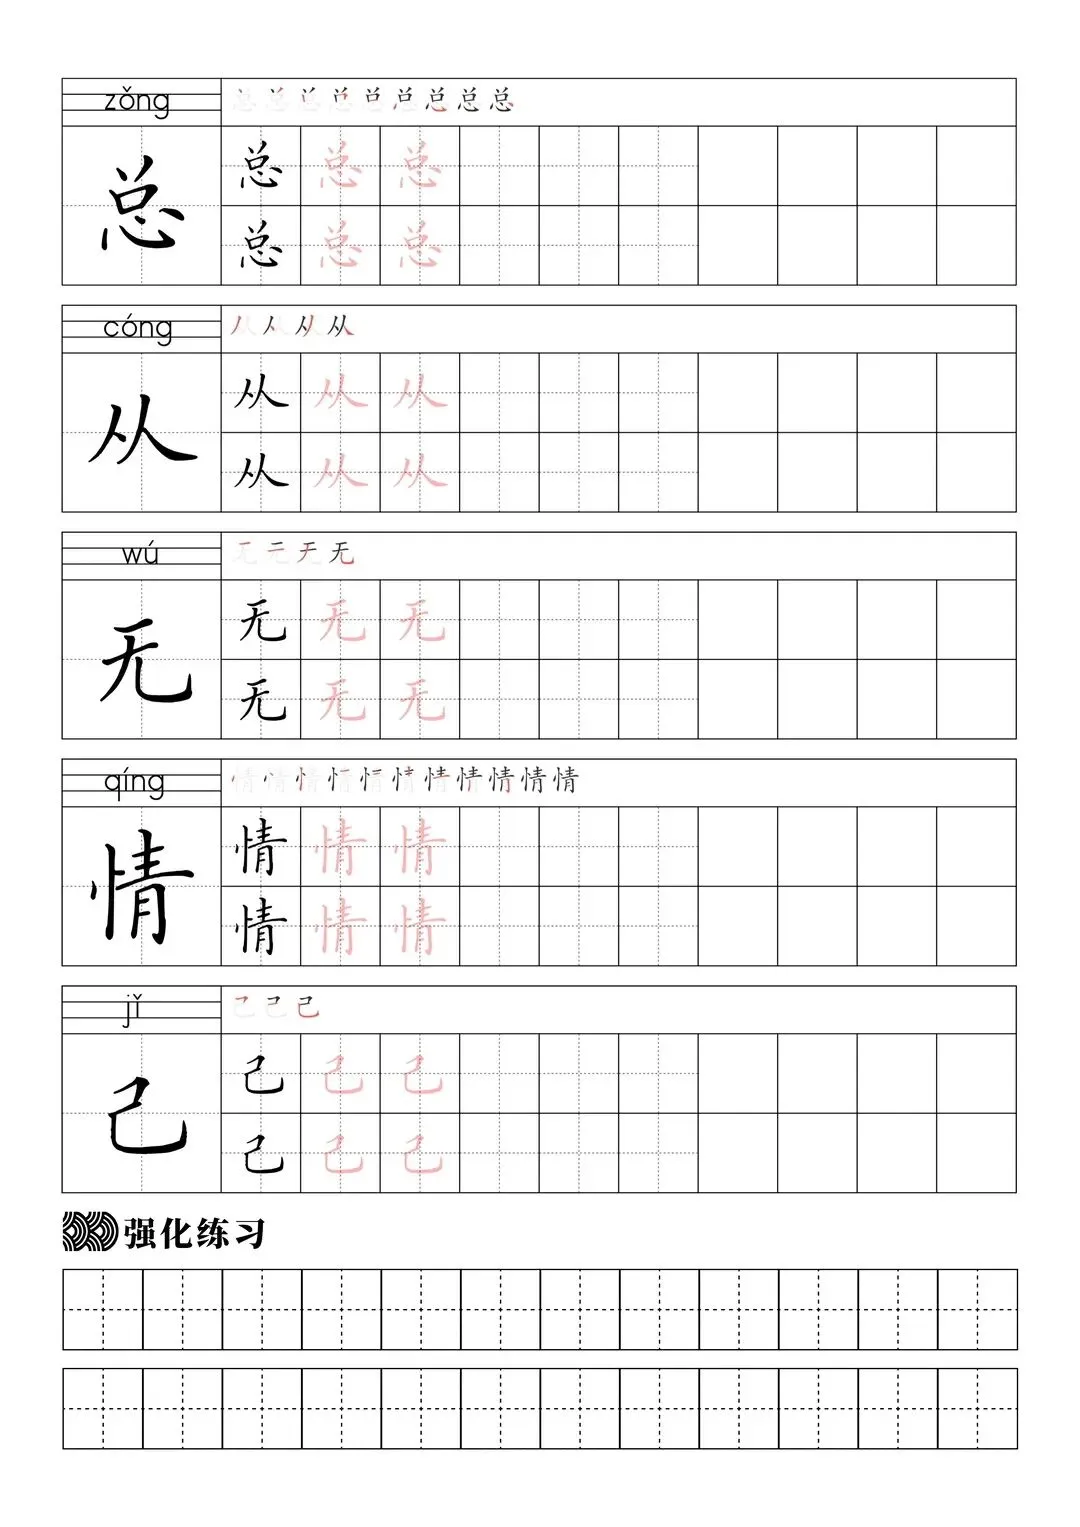 zǒng 总总总总总总总总总
总 总 总 总
总 总 总
cóng 从从从从
从 从 从 从
从 从 从
wú 无无无无
无 无 无 无
无 无 无
qíng 情情情情情情情情情情情
情 情 情 情
情 情 情
jǐ 己己己
己 己 己 己
己 己 己
强化练习